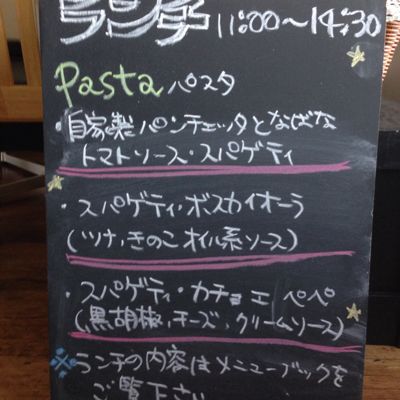 ランチ 11:00〜14:30
Pasta パスタ
・自家製パンチェッタとなばな
トマトソース・スパゲティ
・スパゲティ・ボスカイオーラ
(ツナ,きのこオイル系ソース)
・スパゲティ・カチョエ ペペ
(黒胡椒,チーズ,クリームソース)
※ランチの内容はメニューブックを
ご覧下さい